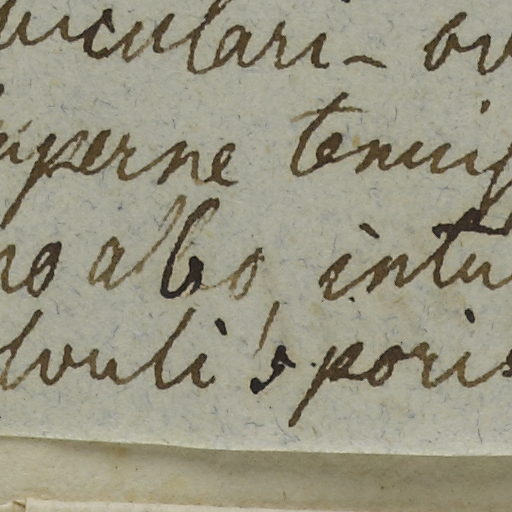 biculari - ov
uperne tenuis
no albo, intu
lvuli's poris